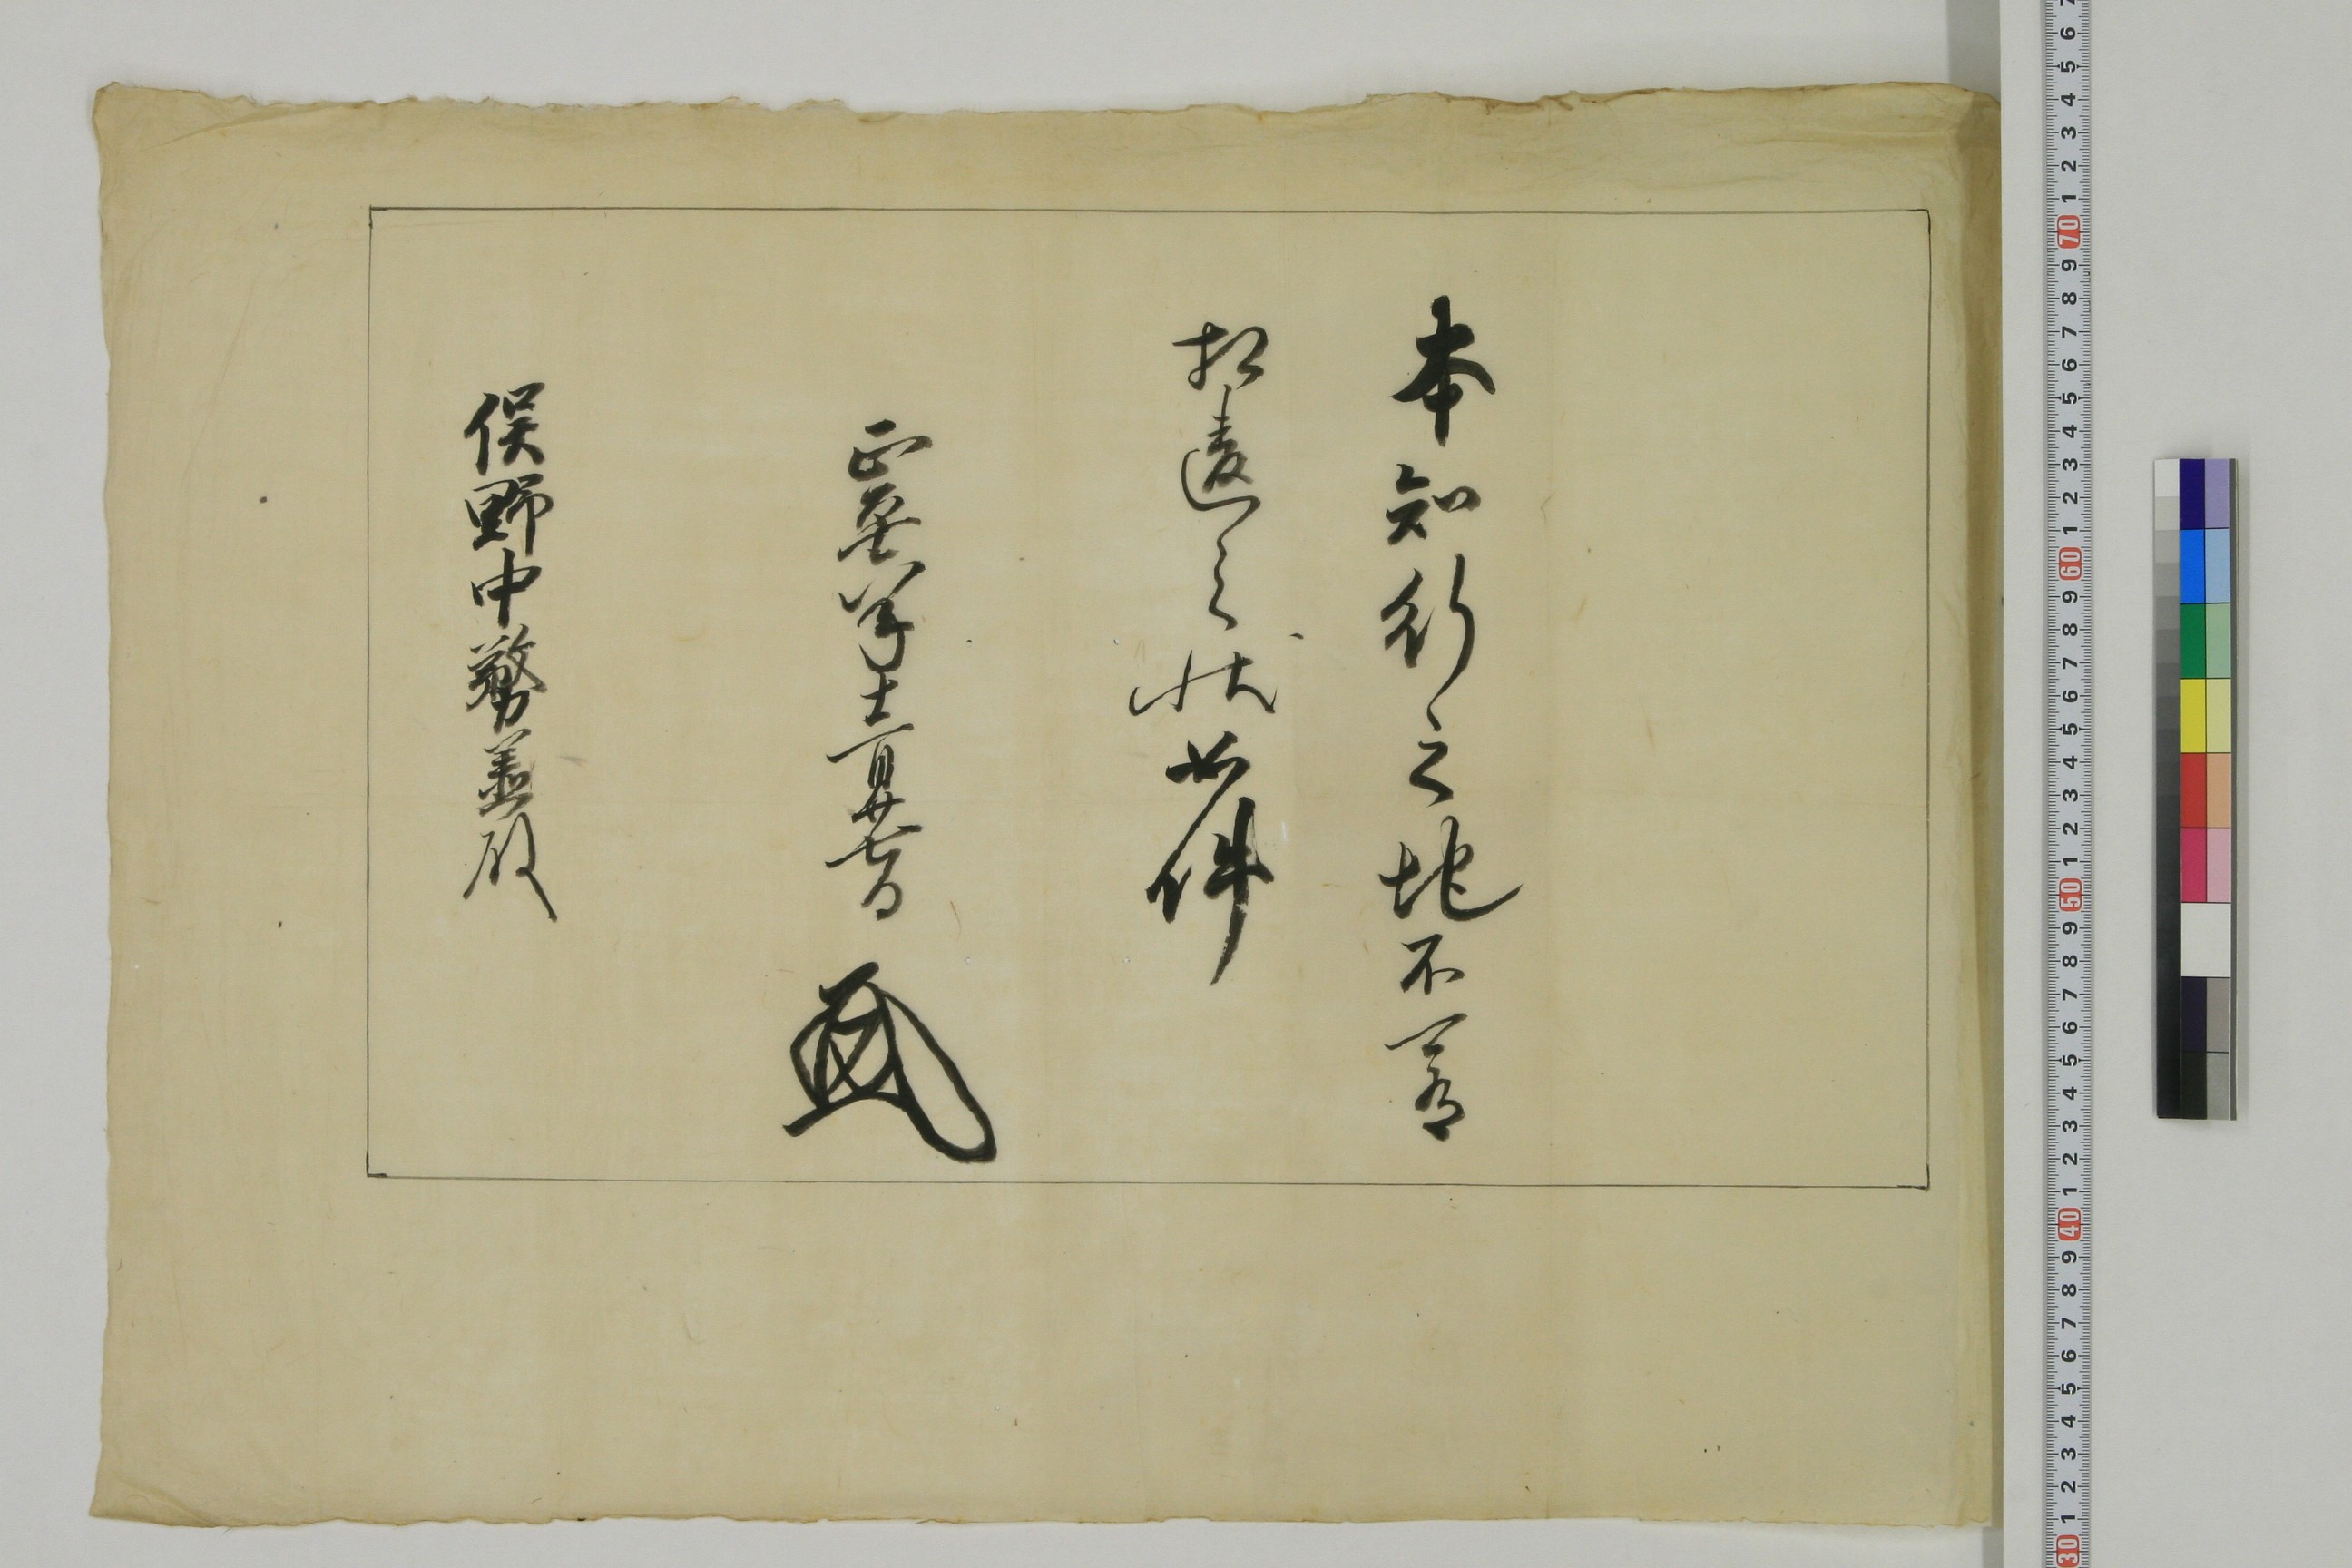 本知行之地不可有
相違之状如件
正平六年十二月廿七日
俣野中務丞殿